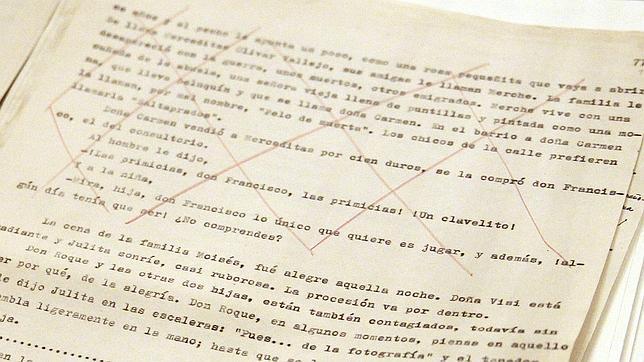 ce años y el pecho le apunta un poco, como una rosa pequeñita que vaya a abrir.
Se llama Merceditas Olivar Vallejo, sus amigas le llaman Merche. La familia le
desapareció con la guerra, unos muertos, otros emigrados. Merche vive con una
cuñada de la abuela, una señora vieja llena de puntillas y pintada como una mo-
na, que lleva bisoñín y que se llama doña Carmen. En el barrio a doña Carmen
la llaman, por mal nombre, "Pelo de muerta". Los chicos de la calle prefieren
llamarla "Saltaprados".
Doña Carmen vendió a Merceditas por cien duros, se la compró don Francis-
co, el del consultorio.
Al hombre le dijo,
-¡Las primicias, don Francisco, las primicias! ¡Un clavelito!
Y a la niña,
-Mira, hija, don Francisco lo único que quiere es jugar, y además, ¡al-
gún día tenía que ser! ¿No comprendes?
La cena de la familia Moisés, fué alegre aquella noche. Doña Visi está
radiante y Julita sonríe, casi ruborosa. La procesión va por dentro.
Don Roque y las otras dos hijas, están también contagiados, todavía sin
er por qué, de la alegría. Don Roque, en algunos momentos, piensa en aquello
le dijo Julita en las escaleras: "Pues... de la fotografía" y el tenedor
embla ligeramente en la mano; hasta que se
ja.
77